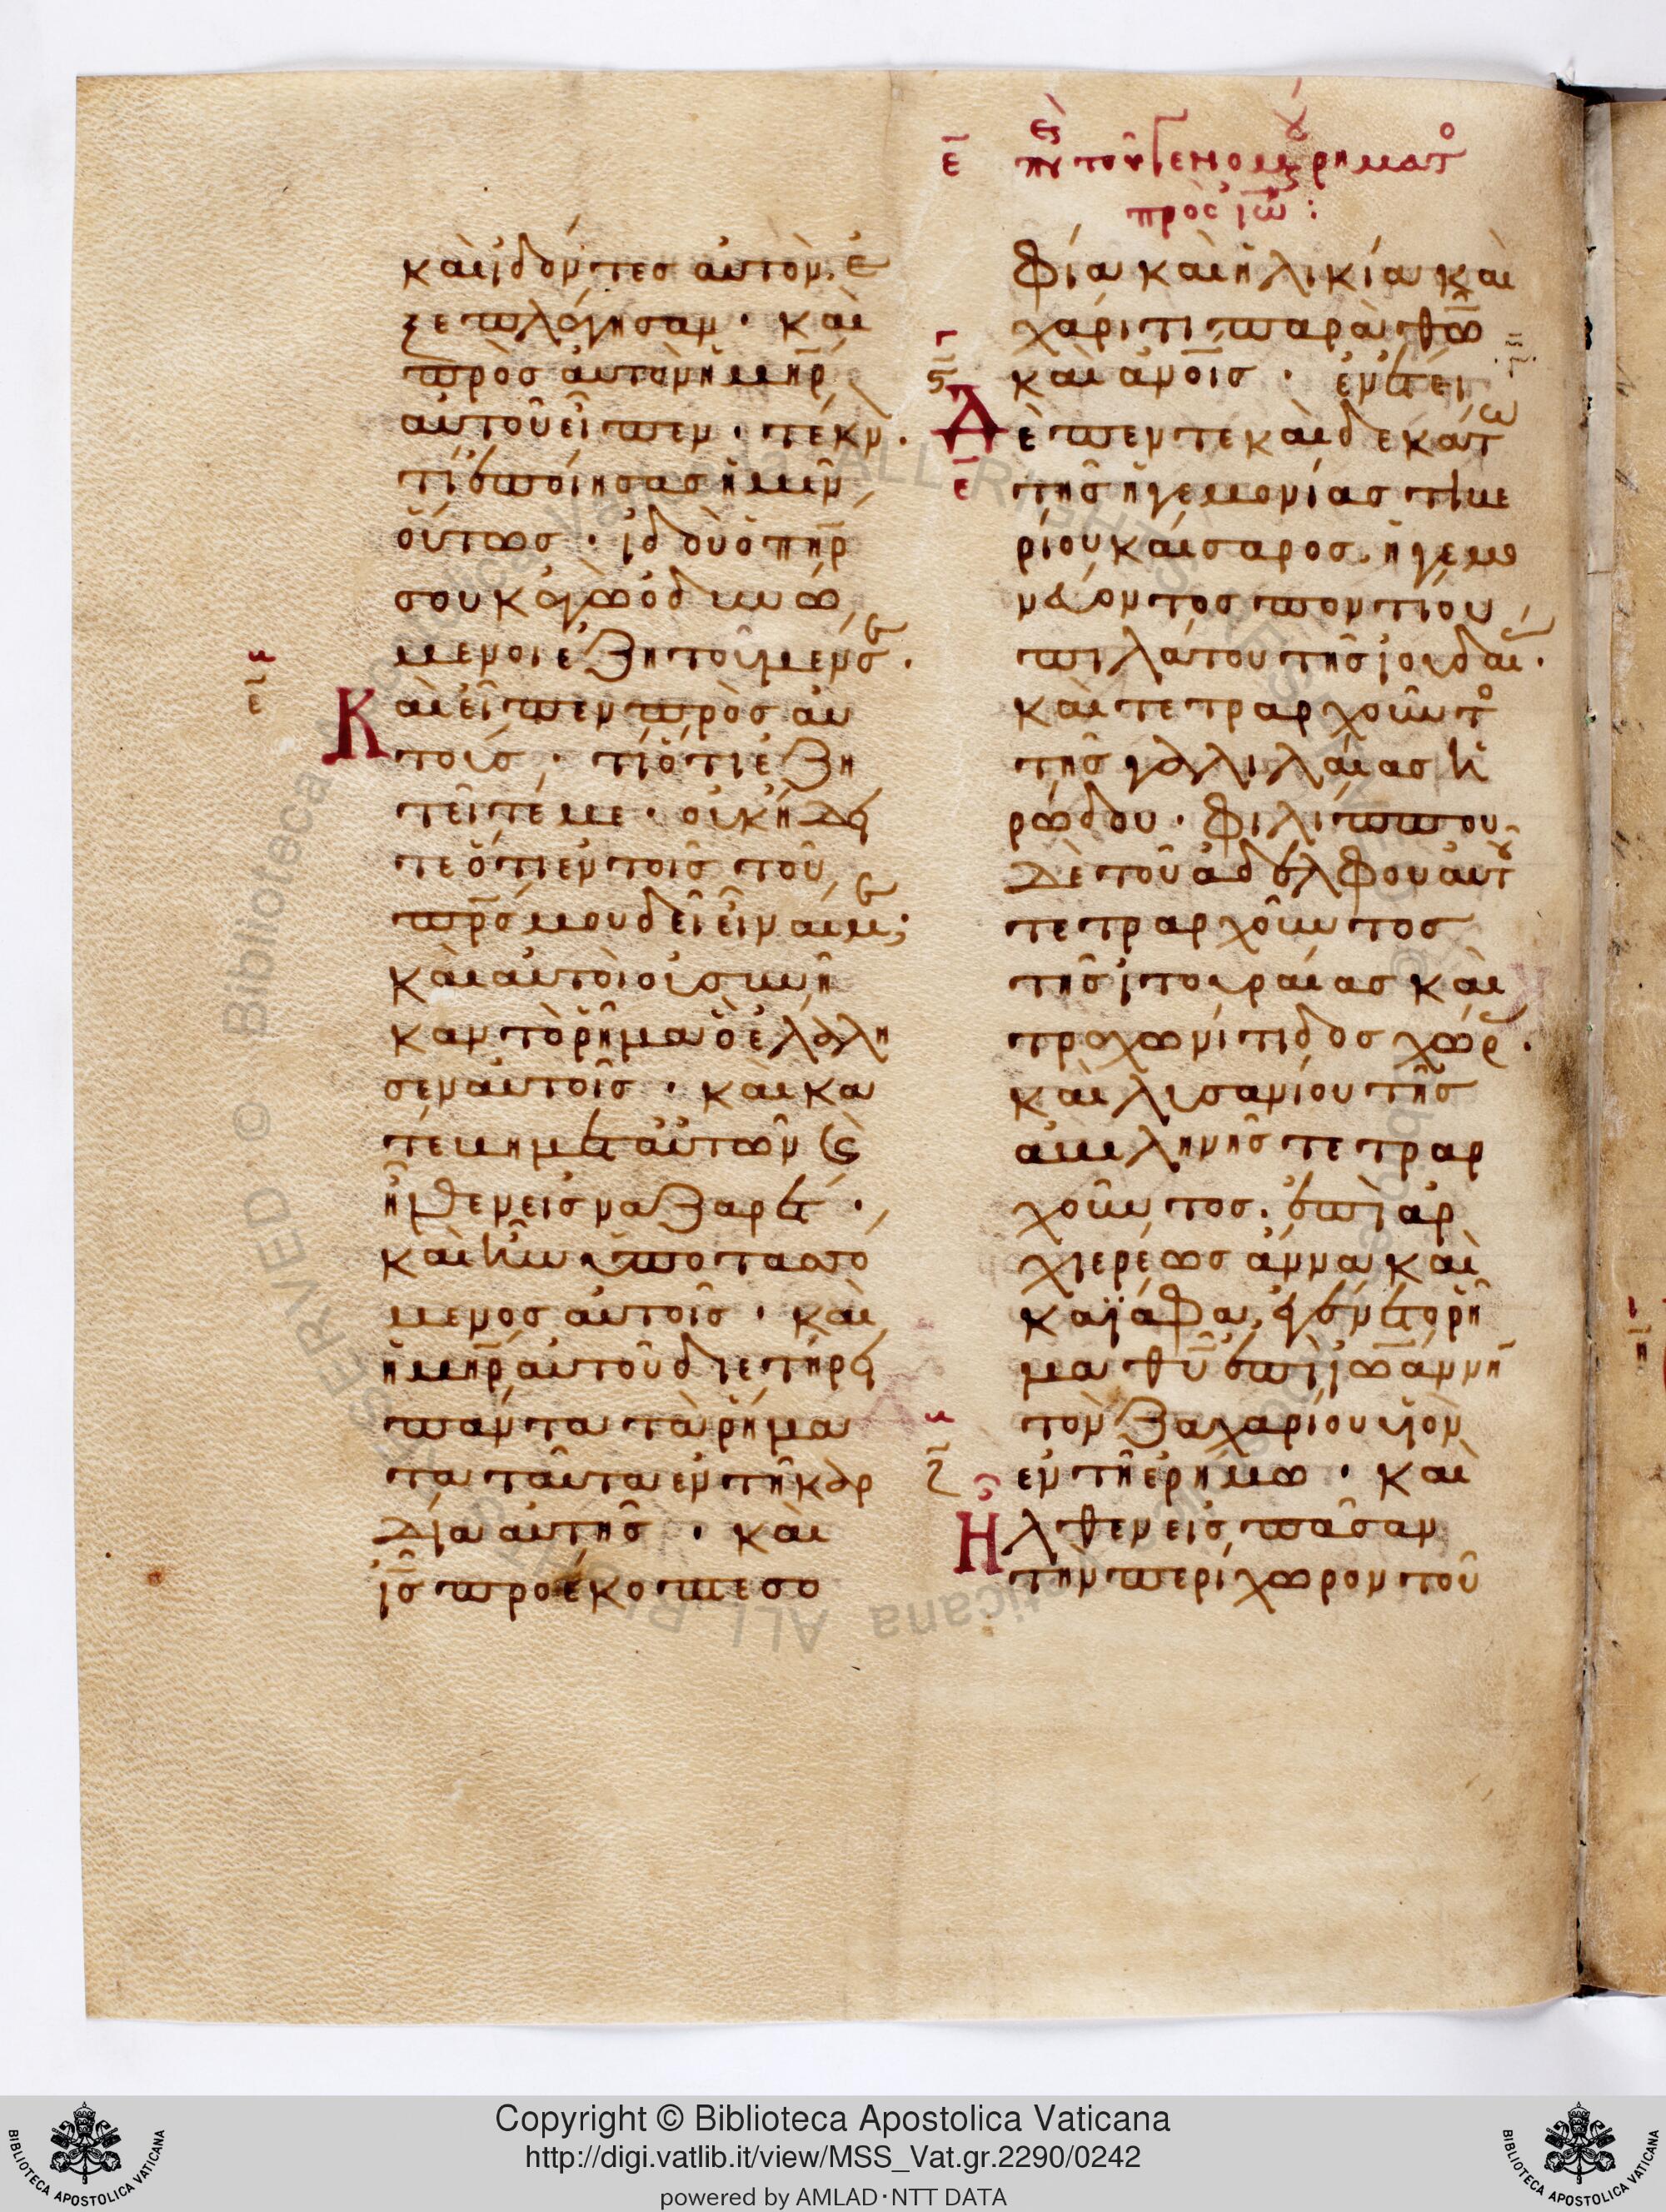 ε̄ εἰς τὴν τοῦ γενομένου ῥήματος
πρὸς ἰω̅:
καὶ ἰδόντες αὐτὸν. ἐ
ξεπλάγησαν · καὶ
πρὸς αὐτὸν ἡ μη̅ρ
αὐτοῦ εἶπεν · τέκν.
τί ἐποίησας ἡμῖν
οὕτως · ἰδοὺ ὁ πη̅ρ
σου κἀγὼ ὀδυνώ
μενοι ἐζητοῦμέν σε .
Καὶ εἶπεν πρὸς αὐ
τούς · τί ὅτι ἐζη
τεῖτέ με · οὐκ ἤδει
τε ὅτι ἐν τοῖς τοῦ
πρ̅ς μου δεῖ εἶναι με;
καὶ αὐτοὶ οὐ συνῆ
καν τὸ ῥῆμα ὃ ἐλάλη
σεν αὐτοῖς · καὶ κα
τέβη μετ αὐτῶν καὶ
ἦλθεν εἰς ναζαρέτ ·
καὶ ἦν ὑποτασσό
μενος αὐτοῖς · καὶ
ἡ μη̅ρ αὐτοῦ διετήρει
πάντα τὰ ῥήμα
τα ταῦτα ἐν τῇ καρ
δία αὐτῆς · καὶ
ι̅ς προέκοπτε σο
φία καὶ ἡλικία καὶ
χάριτι παρὰ θω̅
καὶ ἀνοις · ἐν ἔτει
Δὲ πεντεκαιδεκάτω
τῆς ἡγεμονίας τιβε
ρίου καίσαρος. ἡγεμο
νεύοντος ποντίου
πιλάτου τῆς ἰουδαί.
καὶ τετραρχοῦντο
τῆς γαλιλαίας ἡ
ρώδου · φιλίππου
δὲ τοῦ ἀδελφοῦ αὐτοῦ
τετραρχοῦντος
τῆς ἰτουραίας καὶ
τραχωνίτιδος χώρ.
καὶ λυσανίου τῆς
ἀβιληνῆς τετραρ
χοῦντος. ἐπὶ ἀρ
χιερέως ἄννα καὶ
καϊάφα, ἐγένετο ῥῆ
μα θυ̅ ἐπὶ ἰωάννη
τὸν ζαχαρίου υἱὸν
ἐν τῇ ἐρήμω · καὶ
Ἦλθεν εἰς πᾶσαν
τὴν περίχωρον τοῦ
Copyright © Biblioteca Apostolica Vaticana
http://digi.vatlib.it/view/MSS_Vat.gr.2290/0242
powered by AMLAD·NTT DATA
BIBLIOTECA APOSTOLICA VATICANA
BIBLIOTECA APOSTOLICA VATICANA